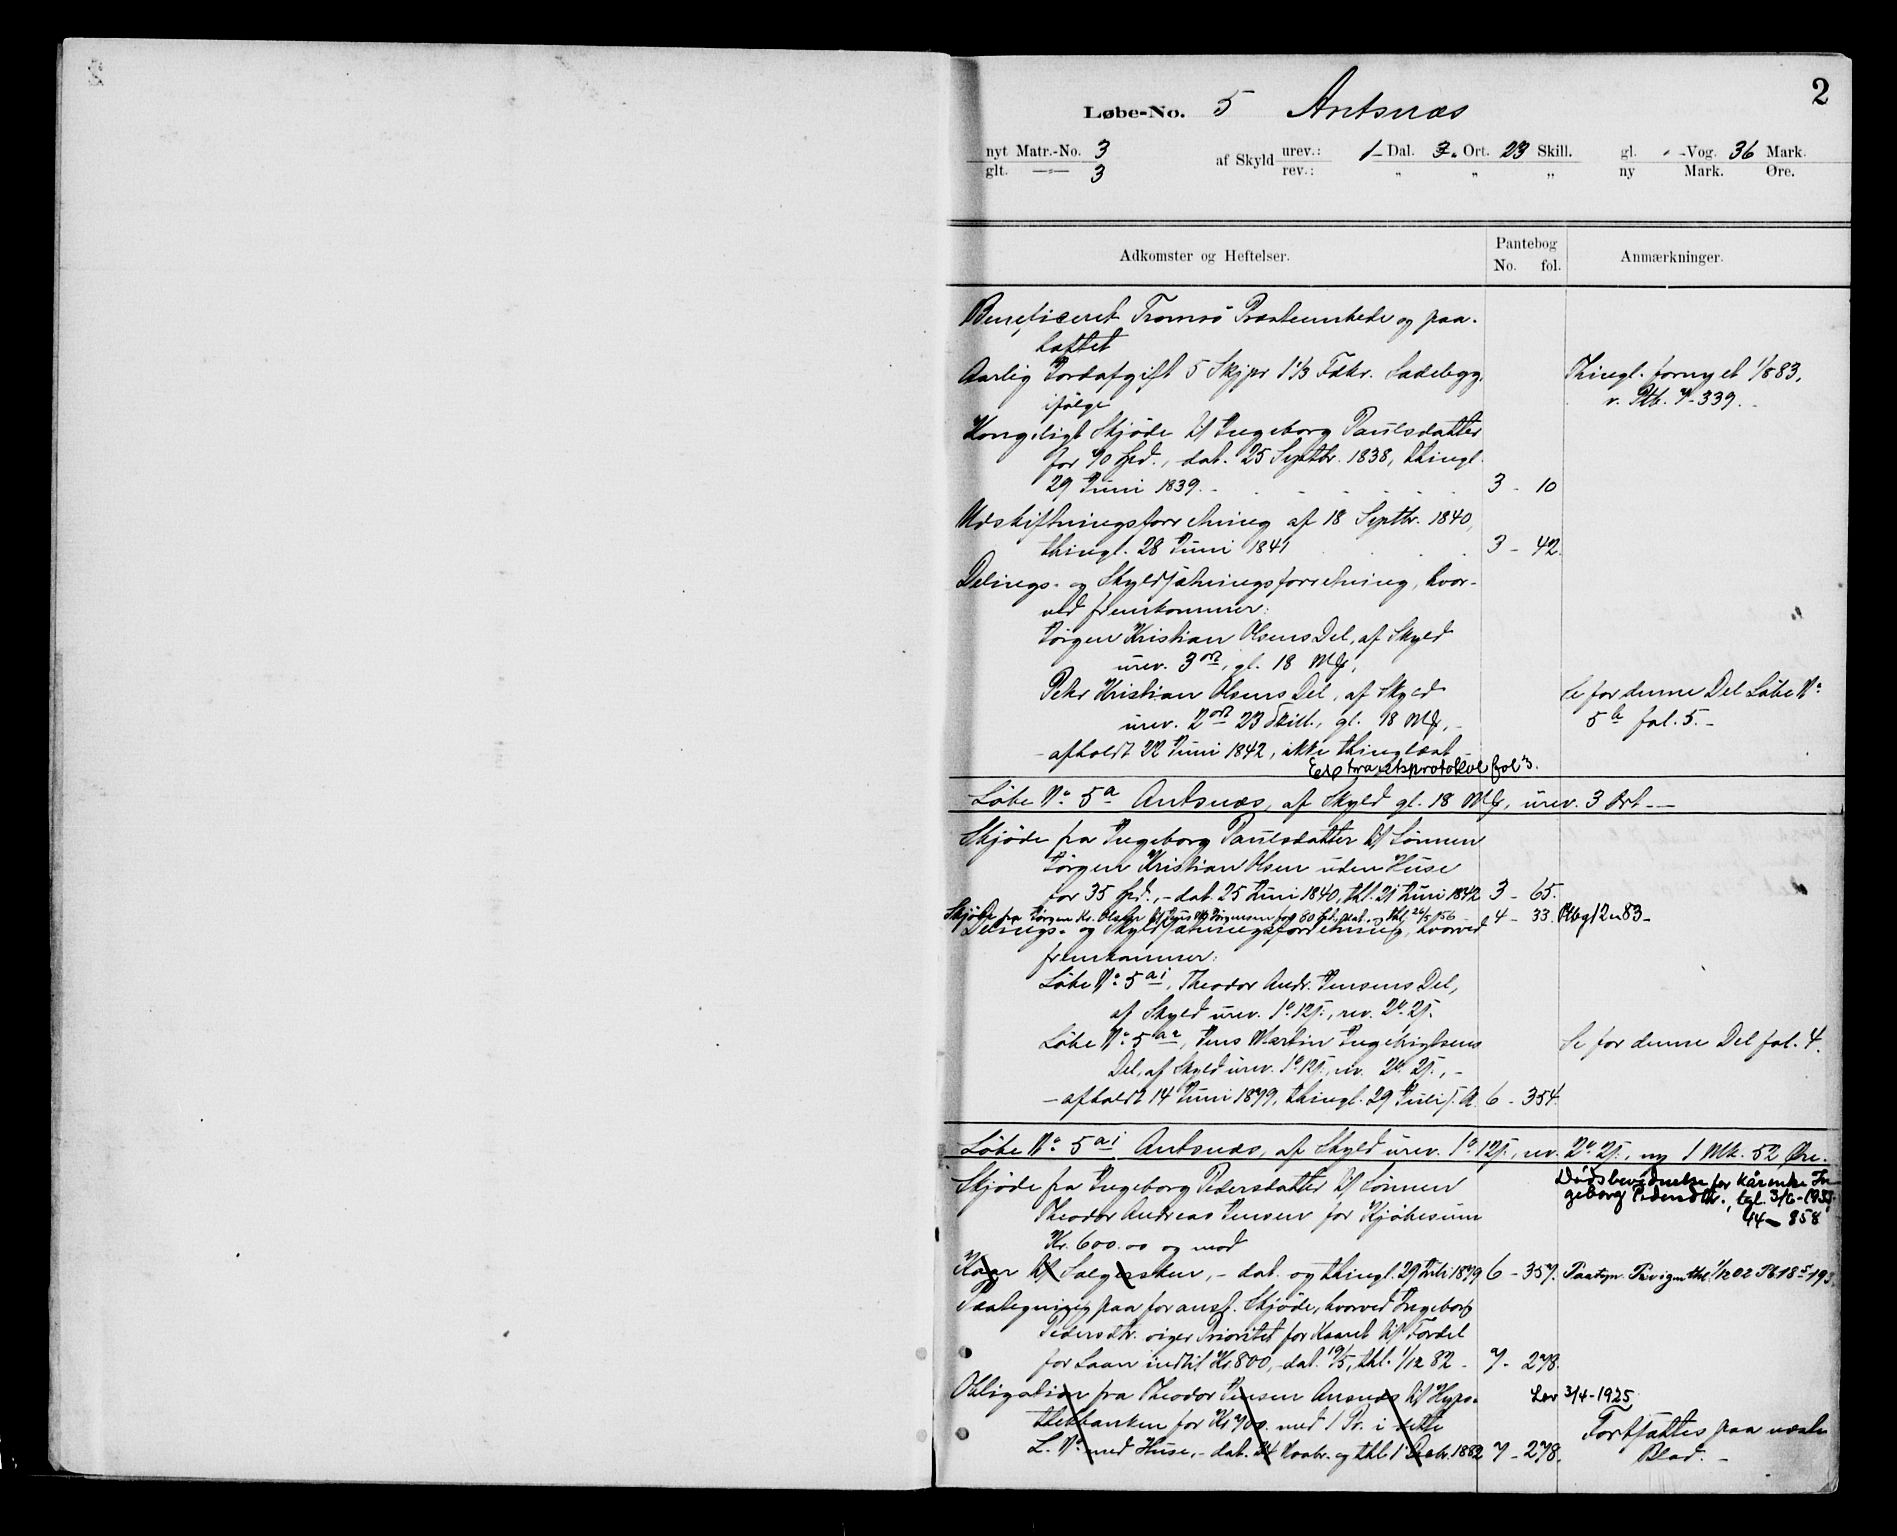 2
Løbe-No. 5 Antsnæs
nyt Matr.-No. 3 af Skyld urev.: 1 Dal. 3. Ort. 23 Skill. gl. " Vog. 36 Mark.
glt. —"— 3 rev.: " " " ny Mark. Øre.
Adkomster og Heftelser. Pantebog No. fol. Anmærkninger.
Beneficeret Tromsö Præsteembede og paa-
haftet
Aarlig Jordafgift 5 Skjpr 1 1/3 Fdkr. Ladebyg, Thingl. fornyet 1/8 83,
ifølge v. Ptb. 7-339.
Kongeligt Skjøde til Ingeborg Paulsdatter
for 70 Spd., dat. 25 Septbr. 1838, thingl.
29 Juni 1839. 3 - 10
Udskiftningsforretning af 18 Septbr. 1840,
thingl. 28 Juni 1841 3 - 42.
Delings- og Skyldsætningsforretning, hvor-
ved fremkommer:
Jörgen Kristian Olsens Del, af Skyld
urev. 3 ort, gl. 18 Mk,
Peder Kristian Olsens Del, af Skyld Se for denne Del Löbe No
urev. 2 ort 23 Skill., gl. 18 Mk, - 5 b fol. 5. -
- afholdt 22 Juni 1842, ikke thinglæst
Extraretsprotokol fol 3.
Löbe No 5 a Antsnæs, af Skyld gl. 18 Mk, urev. 3 Ort -
Skjøde fra Ingeborg Paulsdatter til Sønnen
Jörgen Kristian Olsen uden Huse
for 35 Spd., - dat. 25 Juni 1840, thl. 21 Juni 1842 3 - 65.
Skjøde fra Jörgen Kr. Olsen til Jens Jörgensen for 80 Spd. dat. og thl. 4 - 33. Ptbg 12 n 83 -
Delings- og Skyldsætningsforretning, hvorved
fremkommer:
Löbe No 5 a i, Theodor Andr. Jensens Del,
af Skyld urev. 1 o 12 s., rev. 2 o 2 s.
Löbe No 5 a 2, Jens Martin Ingebrigtsens Se for denne Del fol. 4.
Del, af Skyld urev. 1 o 12 s., rev. 2 o 2 s., -
- afholdt 14 Juni 1879, thingl. 29 Juli s. A. 6 - 354.
Löbe No 5 a i Antsnæs, af Skyld urev. 1 o 12 s., rev. 2 o 2 s., ny 1 Mk. 52 Øre.
Skjøde fra Ingeborg Pedersdatter til Sønnen Dödsbevidnelse for kårenke In-
Theodor Andreas Jensen for Kjøbesum geborg Pedersdtr., tgl. 3/6-1935
Kr. 600.00 og mod 44 - 858
Kaar til Sælgersken, - dat. og thingl. 29 Juli 1879 6 - 357.
Paategning paa foranf. Skjøde, hvorved Ingeborg
Pedersdtr. viger Prioritet for Kaaret til Fordel
for Laan indtil Kr. 800, - dat. 19/5, thl. 1/12 82 - 7 - 278.
Obligation fra Theodor Jensen Ansnæs til Hypo- Lev 3/4-1925
thekbanken for Kr 700. med 1 Pr. i dette Fortsættes paa næste
L. No med Huse, - dat. 24 Novbr. og thl 1 Decbr. 1882 7 - 278. Blad. -